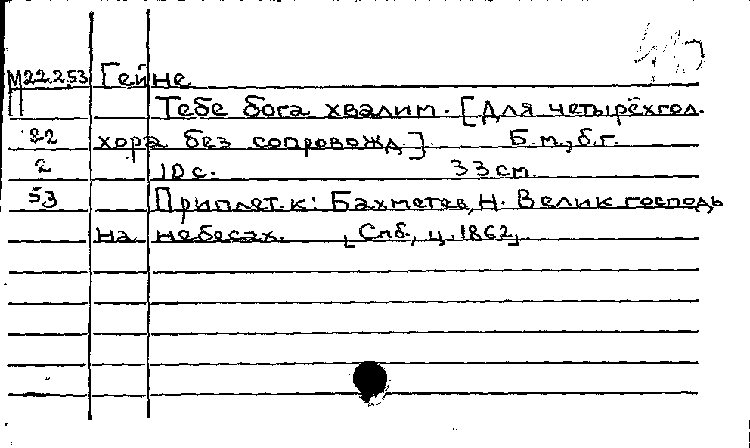 М22.253 Гейне
Тебе бога хвалим. [Для четырёхгол.
22 хора без сопровожд] Б.м., б.г.
2 10 с. 33 см.
53 Приплет. к: Бахметев, Н. Велик господь
на небесах. [Спб, ц. 1862]